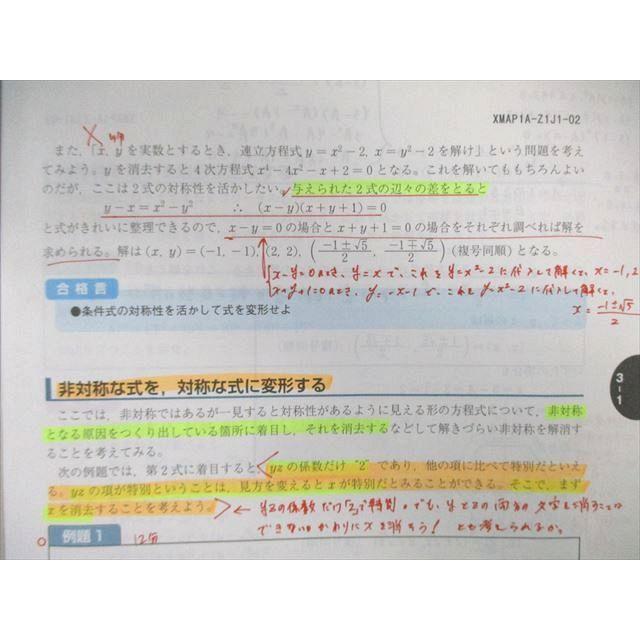 XMAP1A-Z1J1-02
また,「x, yを実数とするとき,連立方程式 y=x²-2, x=y²-2を解け」という問題を考え
てみよう。yを消去すると4次方程式x⁴-4x²-x+2=0となる。これを解いてももちろんよい
のだが,ここは2式の対称性を活かしたい。与えられた2式の辺々の差をとると
y-x=x²-y² ∴ (x-y)(x+y+1)=0
と式がきれいに整理できるので,x-y=0の場合とx+y+1=0の場合をそれぞれ調べれば解を
求められる。解は(x, y)=(-1, -1), (2, 2), (-1±√5/2, -1∓√5/2)(複号同順)となる。
x-y=0のとき、y=xで、これをy=x²-2に代入して解くと、x=-1, 2
x+y+1=0のとき、y=-x-1で、これをy=x²-2に代入して解くと、
x=-1±√5/2
合格言
●条件式の対称性を活かして式を変形せよ
3-1
非対称な式を,対称な式に変形する
ここでは,非対称ではあるが一見すると対称性があるように見える形の方程式について,非対称
となる原因をつくり出している箇所に着目し,それを消去するなどして解きづらい非対称を解消す
ることを考えてみる。
次の例題では,第2式に着目すると,yzの係数だけ"2"であり,他の項に比べて特別だといえ
る。yzの項が特別ということは,見方を変えるとxが特別だとみることができる。そこで,まず
xを消去することを考えよう。
← yzの係数だけ2で特別。でも、yとzの両方の文字を消すことは
できないかわりにxを消そう! とも考えられるか。
例題1
12分